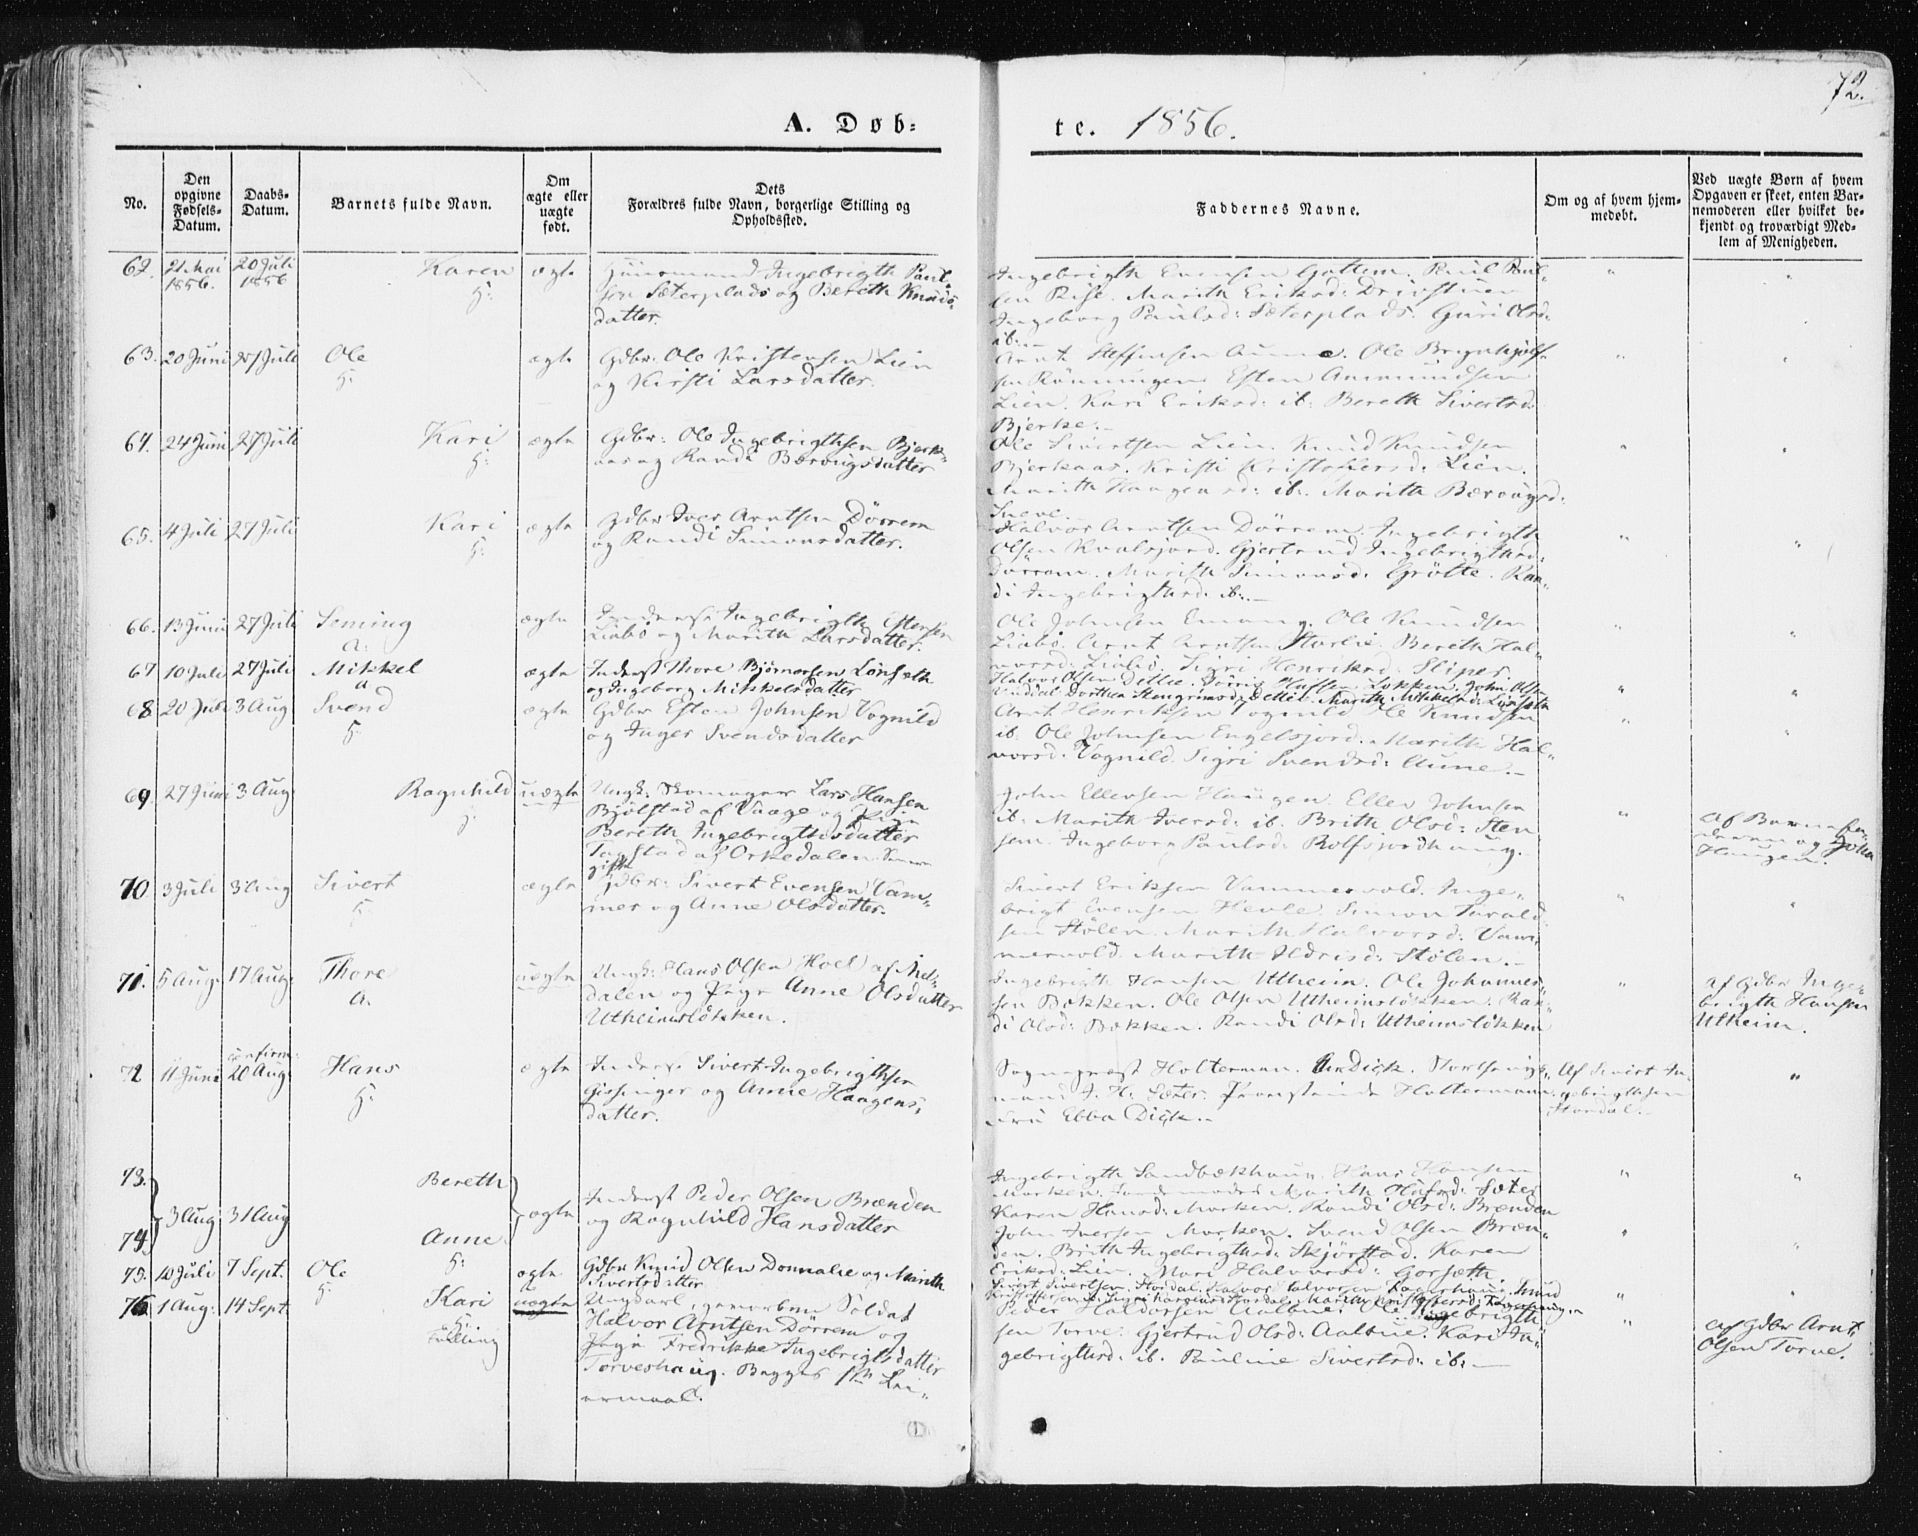 72.
A. Døb=
te. 1856.
No.
Den
opgivne
Fødsels-
Datum.
Daabs-
Datum.
Barnets fulde Navn.
Om
ægte eller
uægte
født.
Dets
Forældres fulde Navn, borgerlige Stilling og
Opholdssted.
Faddernes Navne.
Om og af hvem hjem-
medøbt.
Ved uægte Børn af hvem
Opgaven er skeet, enten Bar-
nemoderen eller hvilket be-
kjendt og troværdigt Med-
lem af Menigheden.
62. 21 Mai 20 Juli Karen ægte Huusmand Ingebrigth Paul-
1856. 1856
sen Sæterplads og Bereth Knuds-
datter.
Ingebrigth Evensen Gottem. Paul
sen Rise. Marith Eriksd: Drivstuen
Ingeborg Paulsd: Sæterplads. Guri Olsd:
ib:—
63. 20 Juni 27 Juli Ole ægte Gdbr: Ole Kristensen Lien
og Kirsti Larsdatter.
Arnt Steffensen Aune. Ole Brynhjolf-
sen Rönningen Esten Aamundsen
Lien. Kari Eriksd: ib: Bereth Sivertsd:
Bjerke.—
64. 24 Juni 27 Juli Kari ægte Gdbr: Ole Ingebrigthsen Bjerk-
aas og Randi Bærougsdatter
Ole Sivertsen Lien. Knud Knudsen
Bjerkaas. Kristi Kristoffersd: Lien.
Marith Haagensd: ib:. Marith Bærougsd:
65. 4 Juli 27 Juli Kari ægte Gdbr Iver Arntsen Dörrem
og Randi Simonsdatter.
Halvor Arntsen Dörrem. Ingebrigth
Olsen Kvalsjord. Gjertrud Ingebrigthsd:
Dörrem. Marith Simonsd: Grötte. Ran-
di Ingebrigthsd: ib:.—
66. 13 Juni 27 Juli Seming ægte Inderst Ingebrigth Estensen
Liabö og Marith Larsdatter.
Ole Johnsen Emang. Ole Knudsen
Liabö. Arnt Arntsen Storlie. Bereth Hal-
vorsd: Liabö. Sigri Henriksd: Slipes.
67 10 Juli 27 Juli Mikkel ægte Inderst Thore Björnersen Lönseth
og Ingeborg Mikkelsdatter
Halvor Olsen Detlie. John Olsen
Dorthea Steengrimsd: Detlie. Marith Mikkelsd: Lönseth
68 20 Juli 3 Aug Svend ægte Gdbr Esten Johnsen Vognild
og Inger Svendsdatter
Arnt Henriksen Vognild Ole Knudsen
ib. Ole Johnsen Engelsjord. Marith Hal-
vorsd: Vognild. Sigri Svendsd: Aune.—
69 27 Juni 3 Aug: Ragnhild uægte Ungk: Skomager Lars Hansen
Bjölstad af Vaage og Pige
Bereth Ingebrigthsdatter
Tagstad af Orkedalen.
John Ellevsen Haugen. Ellev Johnsen
ib: Marith Iversd: ib. Brith Olsd: Sten
Ingeborg Paulsd: Rolfsjordhaug.—
Af Barnefa-
deren og John
Haugen.
70 3 Juli 3 Aug Sivert ægte Gdbr: Sivert Evensen Vam-
mer og Anne Olsdatter.
Sivert Eriksen Vammervold. Inge-
brigt Evensen Hevle. Simon Tarald
sen Stölen. Marith Halvorsd: Vam-
mervold. Marith Ildrisd: Stölen.—
71. 5 Aug. 17 Aug: Thore uægte Ungk: Hans Olsen Hoel af Mel-
dalen og Pige Anne Olsdatter
Utheimslökken.
Ingebrigth Hansen Utheim. Ole Johannes-
sen Bækken. Ole Olsen Utheimslökken. Ran-
di Olsd: Bækken. Randi Olsd: Utheimslökken
af Gdbr Inge-
brigth Hansen
Utheim.
72 11 Juni confirm: 20 Aug: Hans ægte Inderst Sivert Ingebrigthsen
Gissinger og Anne Haagens-
datter.
Sognepræst Holterman. Storthings-
mand J. H. Sæter. Holtermann
Fru Ebba Dick.—
Af Sivert In-
gebrigthsen
Stordal.—
73. Bereth
3 Aug 31 Aug ægte Inderst Peder Olsen Brænden
og Ragnhild Hansdatter
74 Anne
Ingebrigth Sandbækhaug. Hans Hansen
Morken. Marith Olufsd: Sæter
Karen Hansd: Morken. Randi Olsd: Brænden
John Iversen Morken. Svend Olsen Bræn-
den. Brith Ingebrigthsd: Skjörstad. Karen
Eriksd: Lien. Mari Halvorsd: Gorseth
75. 10 Juli 7 Sept. Ole ægte Gdbr Knud Olsen Donnalie og Marith
Sivertsdatter
Sivert Sivertsen Stordal. Halvor Halvorsen Knud
76 1 Aug: 14 Sept. Kari uægte Ungkarl, gevorben Soldat
Tvilling
Halvor Arntsen Dörrem og
Pige Fredrikke Ingebrigtsdatter
Torveshaug. Begges 1ste Lei-
ermaal.
Peder Haldorsen Aalbue. Ole Ingebrigth
sen Torve. Gjertrud Olsd: Aalbue. Kari In-
gebrigthsd: ib. Pauline Sivertsd: ib:—
af Gdbr Arnt
Olsen Torve.